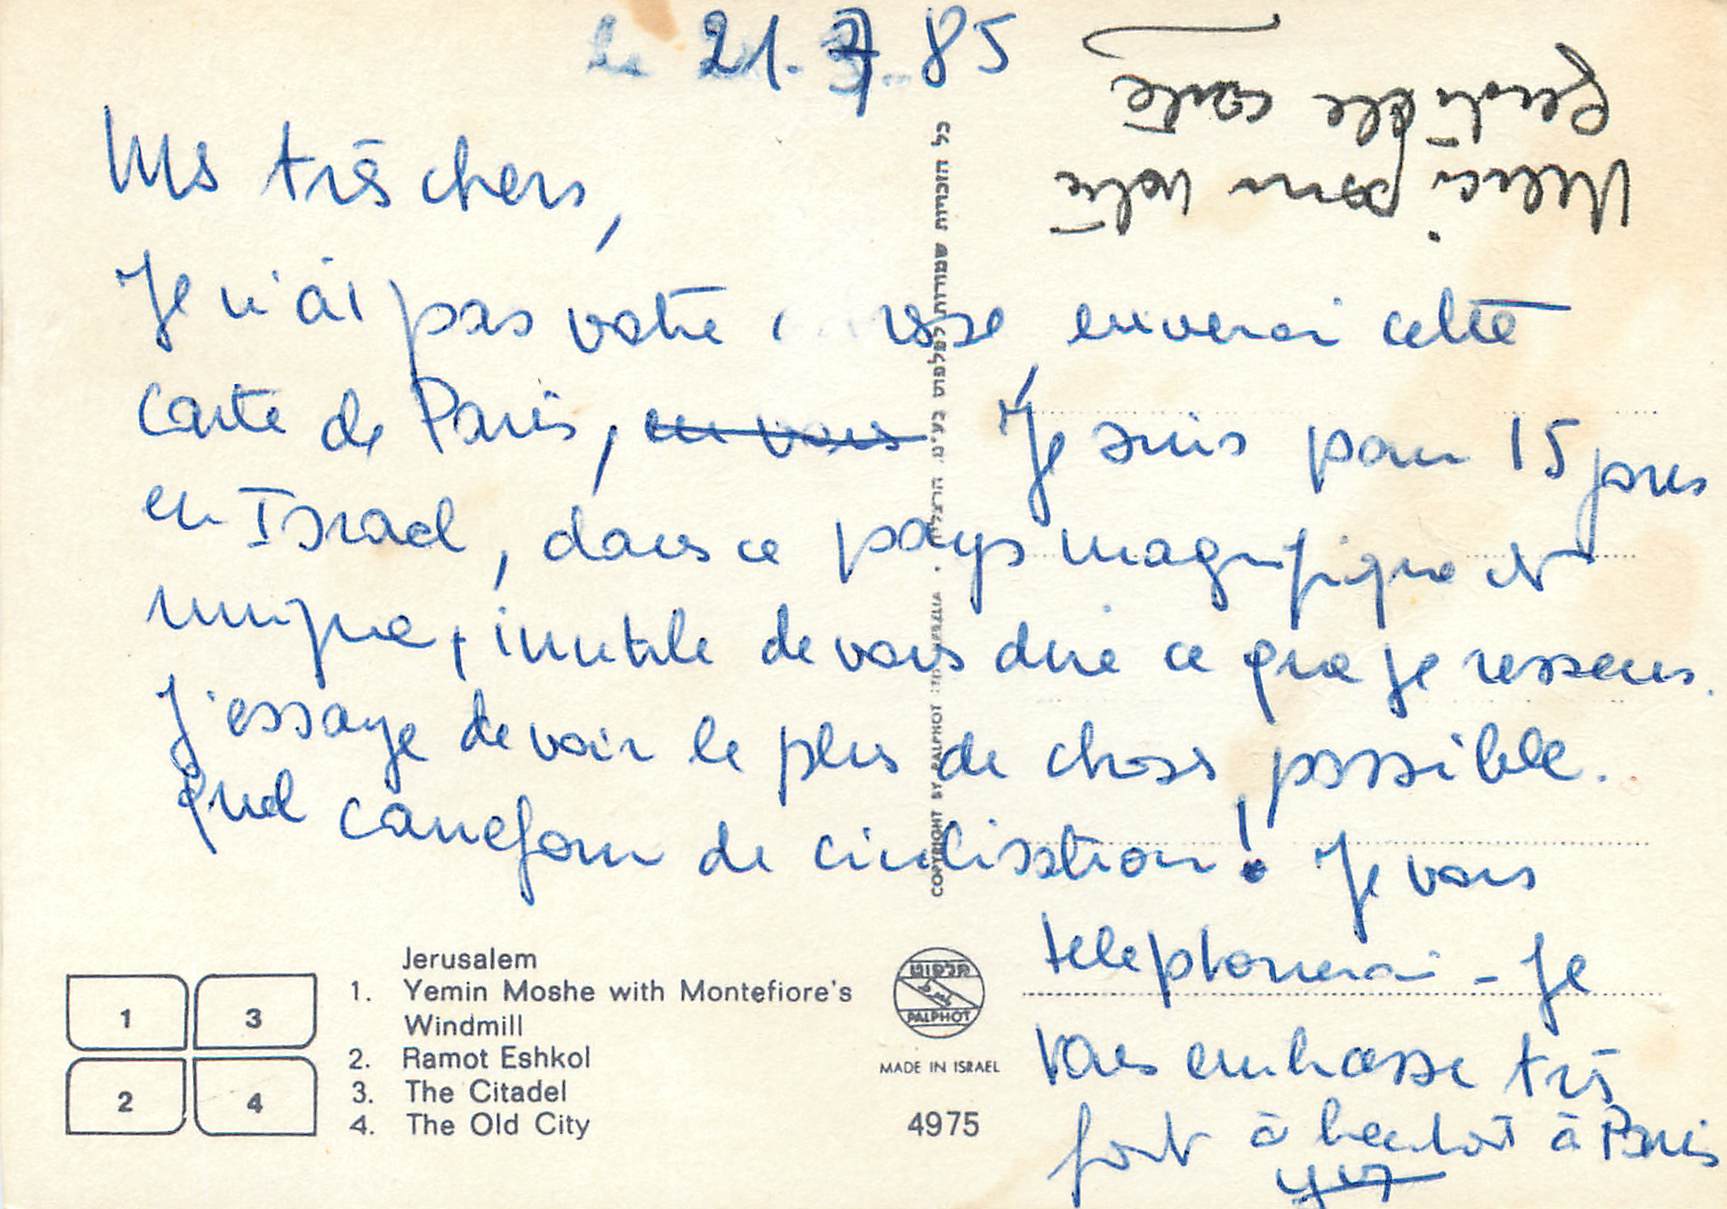 le 21.7.85
Ms très chers,
Je n'ai pas votre resse, enverai cette
carte de Paris, Je suis pour 15 jours
en Israel, dans ce pays magnifique et
unique, inutile de vous dire ce que je ressens.
J'essaye de voir le plus de choses possible.
Quel carrefour de civilisation! Je vous
telephonerai - Je
vous embrasse très
fort à bientôt à Paris
Merci pour votre
gentille carte
כל הזכויות שמורות לפלפוט בע"מ. הרצליה
COPYRIGHT BY PALPHOT LTD. HERZLIA
1
3
2
4
Jerusalem
1. Yemin Moshe with Montefiore's
Windmill
2. Ramot Eshkol
3. The Citadel
4. The Old City
פלפוט
PALPHOT
MADE IN ISRAEL
4975